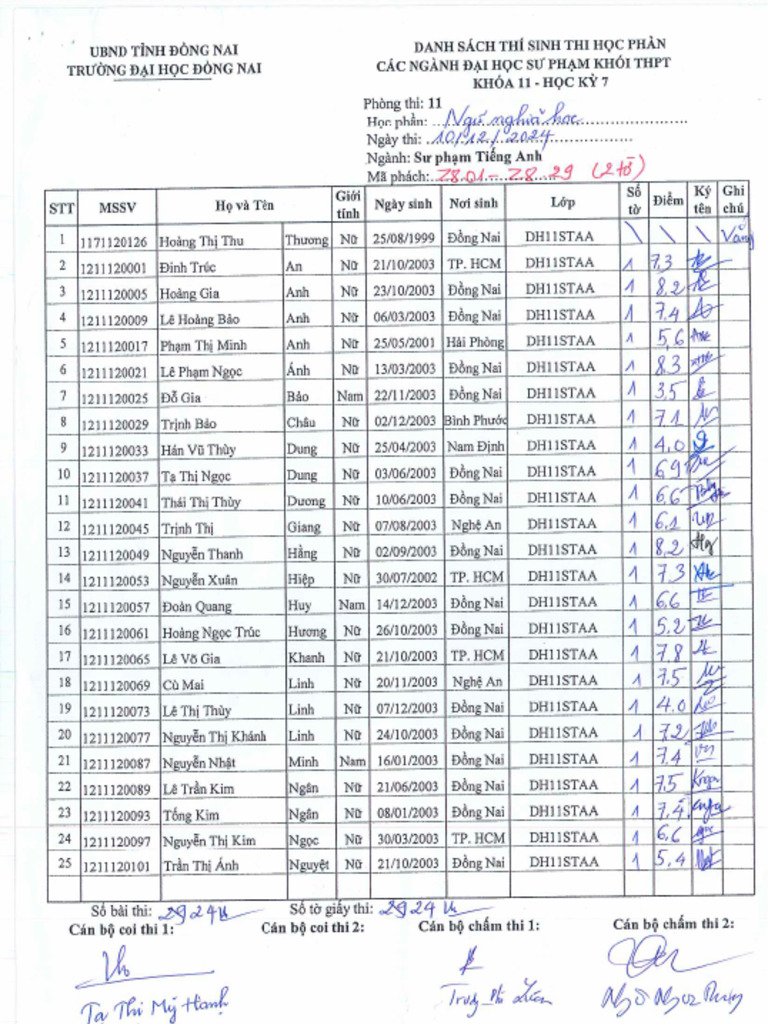 UBND TỈNH ĐỒNG NAI
TRƯỜNG ĐẠI HỌC ĐỒNG NAI
DANH SÁCH THÍ SINH THI HỌC PHẦN
CÁC NGÀNH ĐẠI HỌC SƯ PHẠM KHỐI THPT
KHÓA 11 - HỌC KỲ 7
Phòng thi: 11
Học phần: Ngữ nghĩa học
Ngày thi: 10/12/2024
Ngành: Sư phạm Tiếng Anh
Mã phách: 28.01 - 28.29 (2 tờ)
STT MSSV Họ và Tên Giới tính Ngày sinh Nơi sinh Lớp Số tờ Điểm Ký tên Ghi chú
1 1171120126 Hoàng Thị Thu Thương Nữ 25/08/1999 Đồng Nai DH11STAA \ \ \ Vắng
2 1211120001 Đinh Trúc An Nữ 21/10/2003 TP. HCM DH11STAA 1 7,3
3 1211120005 Hoàng Gia Anh Nữ 23/10/2003 Đồng Nai DH11STAA 1 8,2
4 1211120009 Lê Hoàng Bảo Anh Nữ 06/03/2003 Đồng Nai DH11STAA 1 7,4
5 1211120017 Phạm Thị Minh Anh Nữ 25/05/2001 Hải Phòng DH11STAA 1 5,6
6 1211120021 Lê Phạm Ngọc Ánh Nữ 13/03/2003 Đồng Nai DH11STAA 1 8,3
7 1211120025 Đỗ Gia Bảo Nam 22/11/2003 Đồng Nai DH11STAA 1 3,5
8 1211120029 Trịnh Bảo Châu Nữ 02/12/2003 Bình Phước DH11STAA 1 7,1
9 1211120033 Hán Vũ Thùy Dung Nữ 25/04/2003 Nam Định DH11STAA 1 4,0
10 1211120037 Tạ Thị Ngọc Dung Nữ 03/06/2003 Đồng Nai DH11STAA 1 6,9
11 1211120041 Thái Thị Thùy Dương Nữ 10/06/2003 Đồng Nai DH11STAA 1 6,6
12 1211120045 Trịnh Thị Giang Nữ 07/08/2003 Nghệ An DH11STAA 1 6,1
13 1211120049 Nguyễn Thanh Hằng Nữ 02/09/2003 Đồng Nai DH11STAA 1 8,2
14 1211120053 Nguyễn Xuân Hiệp Nữ 30/07/2002 TP. HCM DH11STAA 1 7,3
15 1211120057 Đoàn Quang Huy Nam 14/12/2003 Đồng Nai DH11STAA 1 6,6
16 1211120061 Hoàng Ngọc Trúc Hương Nữ 26/10/2003 Đồng Nai DH11STAA 1 5,2
17 1211120065 Lê Võ Gia Khanh Nữ 21/10/2003 TP. HCM DH11STAA 1 7,8
18 1211120069 Cù Mai Linh Nữ 20/11/2003 Nghệ An DH11STAA 1 7,5
19 1211120073 Lê Thị Thùy Linh Nữ 07/12/2003 Đồng Nai DH11STAA 1 4,0
20 1211120077 Nguyễn Thị Khánh Linh Nữ 24/10/2003 Đồng Nai DH11STAA 1 7,2
21 1211120087 Nguyễn Nhật Minh Nam 16/01/2003 Đồng Nai DH11STAA 1 7,4
22 1211120089 Lê Trần Kim Ngân Nữ 21/06/2003 Đồng Nai DH11STAA 1 7,5
23 1211120093 Tống Kim Ngân Nữ 08/01/2003 Đồng Nai DH11STAA 1 7,4
24 1211120097 Nguyễn Thị Kim Ngọc Nữ 30/03/2003 TP. HCM DH11STAA 1 6,6
25 1211120101 Trần Thị Ánh Nguyệt Nữ 21/10/2003 Đồng Nai DH11STAA 1 5,4
Số bài thi: 24 Số tờ giấy thi: 24
Cán bộ coi thi 1: Cán bộ coi thi 2: Cán bộ chấm thi 1: Cán bộ chấm thi 2:
Tạ Thị Mỹ Hạnh